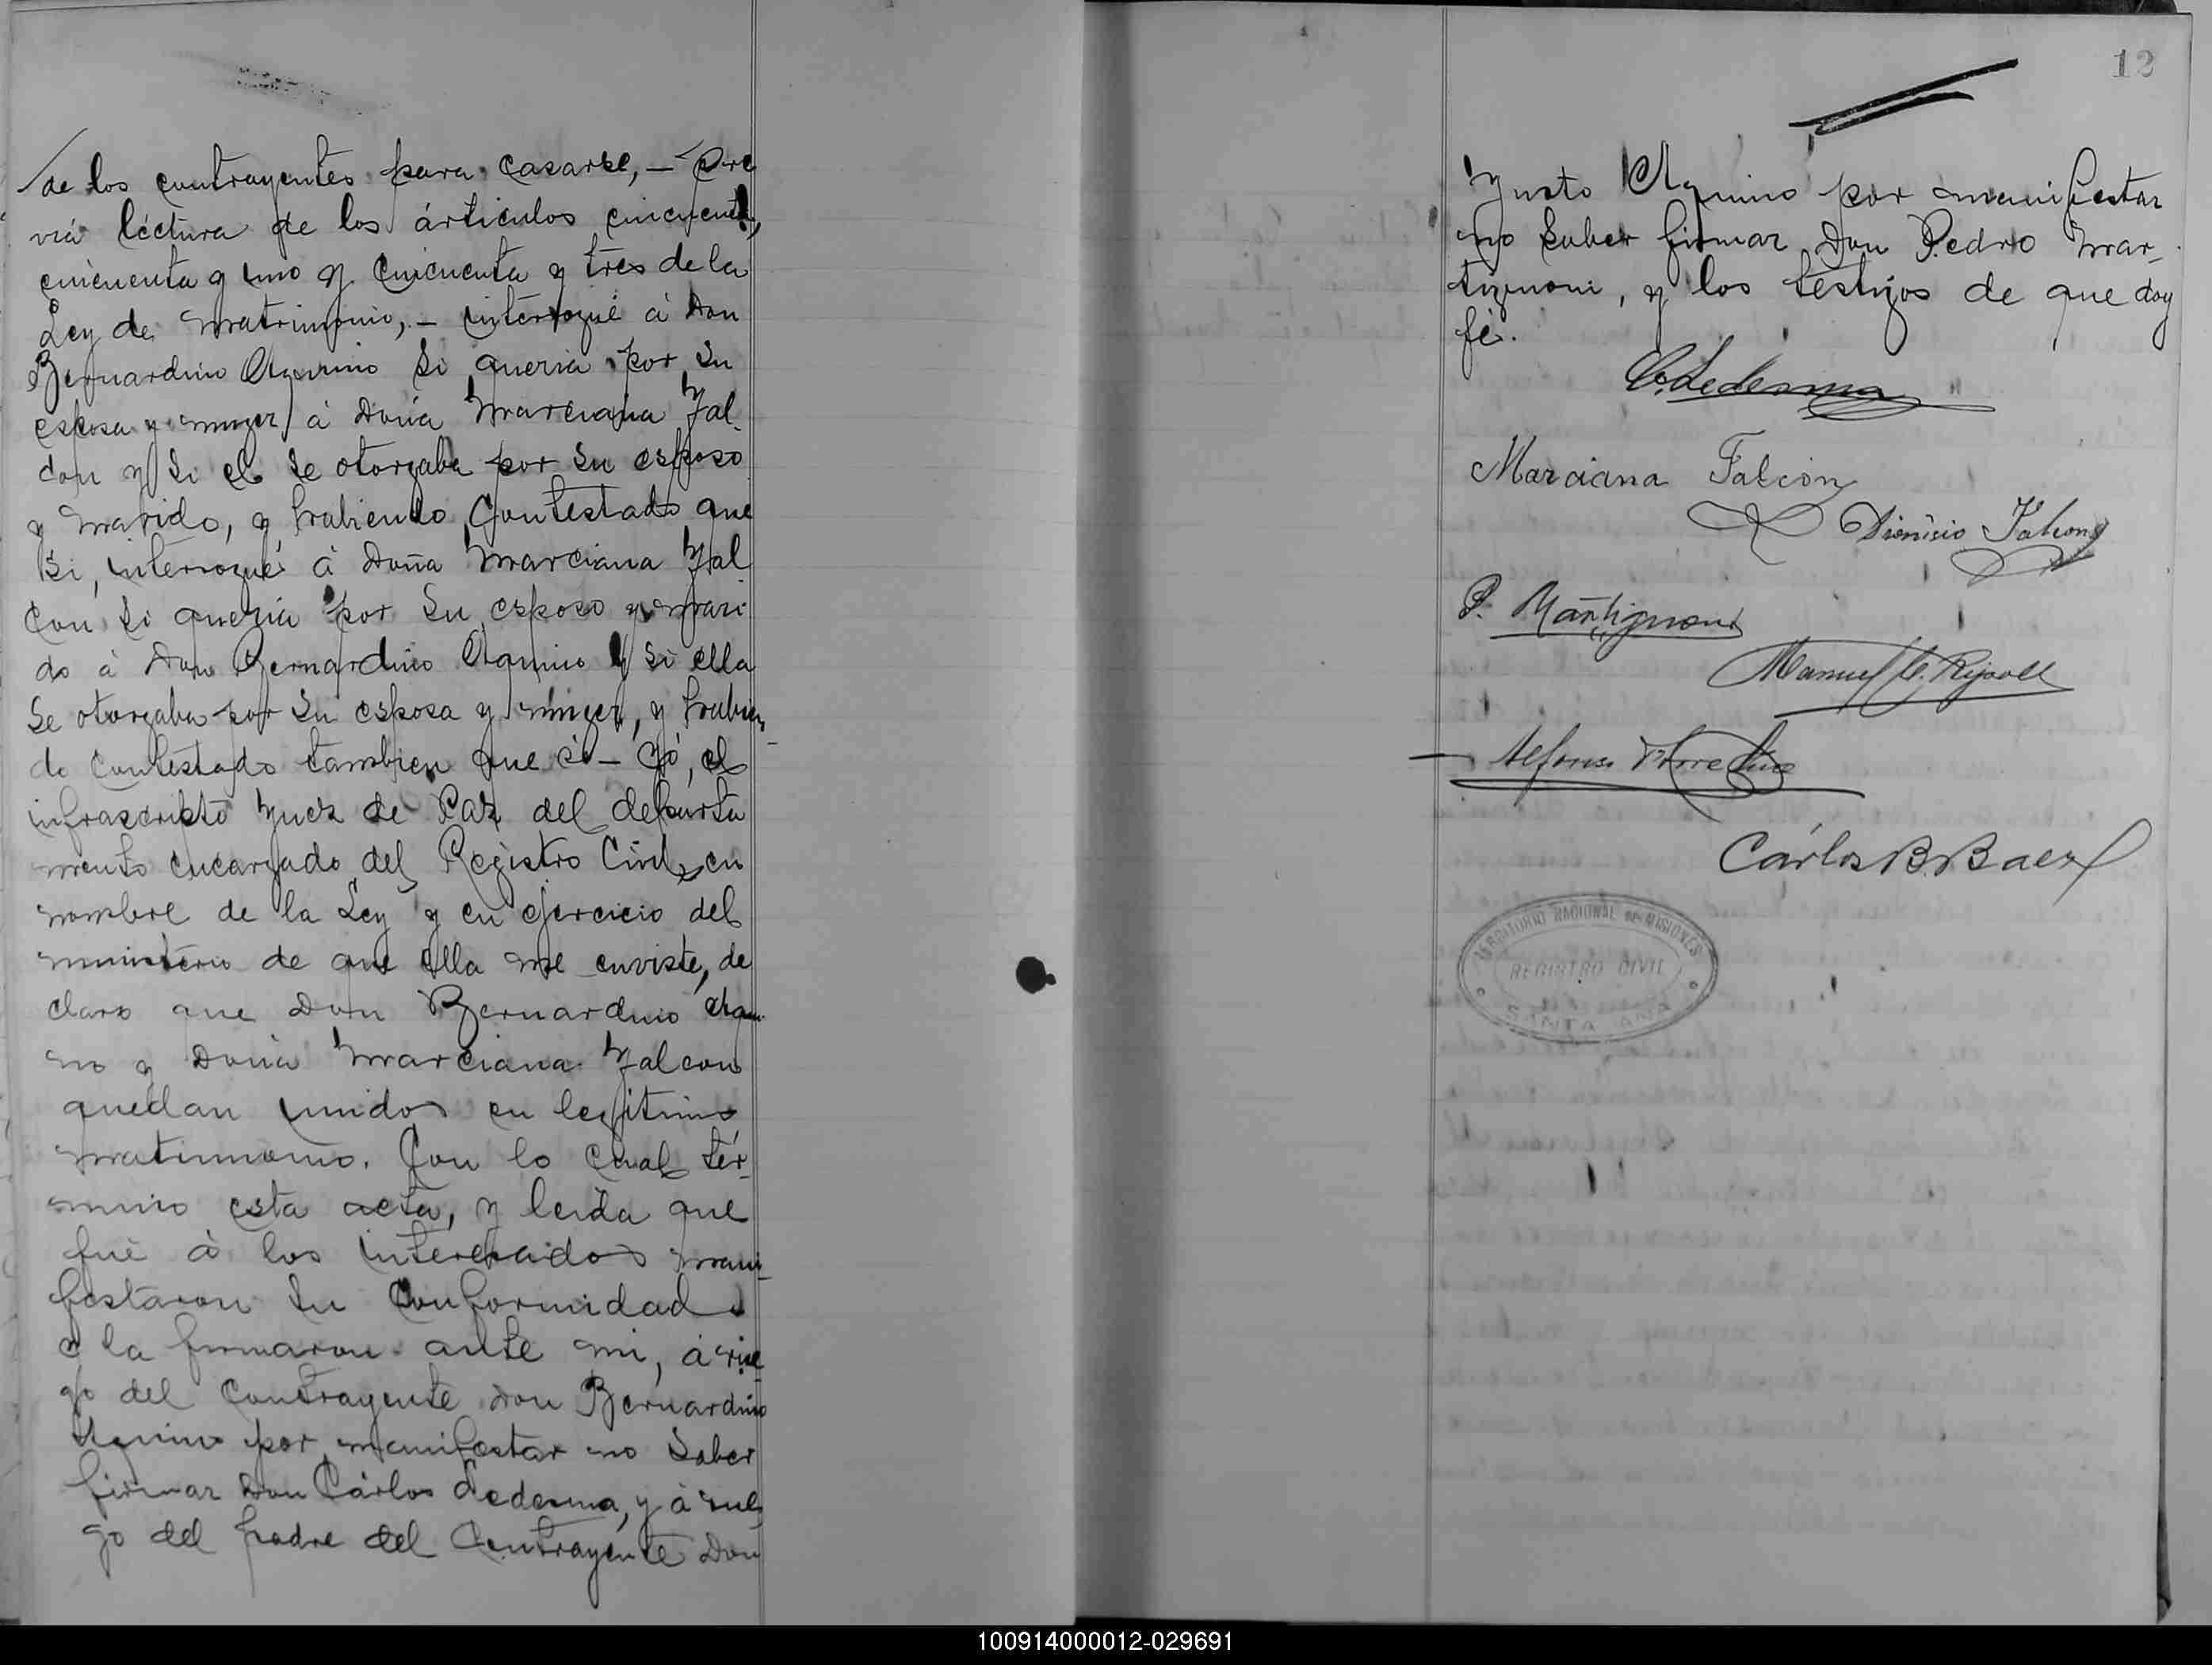 de los contrayentes para casarse, — pre
via léctura de los árticulos cincuenta,
cincuenta y uno y cincuenta y tres de la
Ley de Matrimonio, — interrogué á Don
Bernardino Aquino si queria por su
esposa y muger á Doña Marciana Fal
con y si el se otorgaba por su esposo
y marido, y habiendo contestado que
si, interrogué á Doña Marciana Fal
con si queria por su esposo y mari
do á Don Bernardino Aquino y si ella
se otorgaba por su esposa y muger, y habien
do contestado tambien que si — yó, el
infrascripto Juez de Paz del departa
mento encargado del Registro Civil, en
nombre de la Ley y en ejercicio del
ministerio de que ella me enviste, de
claro que Don Bernardino Aqui
no y Doña Marciana Falcon
quedan unidos en legitimo
matrimonio. Con lo cual tér-
mino esta acta, y leida que
fué á los interesados mani-
festaron su conformidad
y la firmaron ante mi, á rue
go del contrayente Don Bernardino
Aquino por manifestar no saber
firmar Don Cárlos Ledesma, y á rue
go del padre del contrayente Don
12
Justo Aquino por manifestar
no saber firmar Don Pedro Mar-
tignoni, y los testigos de que doy
fé.
C. Ledesma
Marciana Falcón
Dionisio Falcon
P. Martignoni
Manuel C. Ripoll
Alfonso
Cárlos B. Baez
TERRITORIO NACIONAL DE MISIONES
REGISTRO CIVIL
SANTA ANA
100914000012-029691